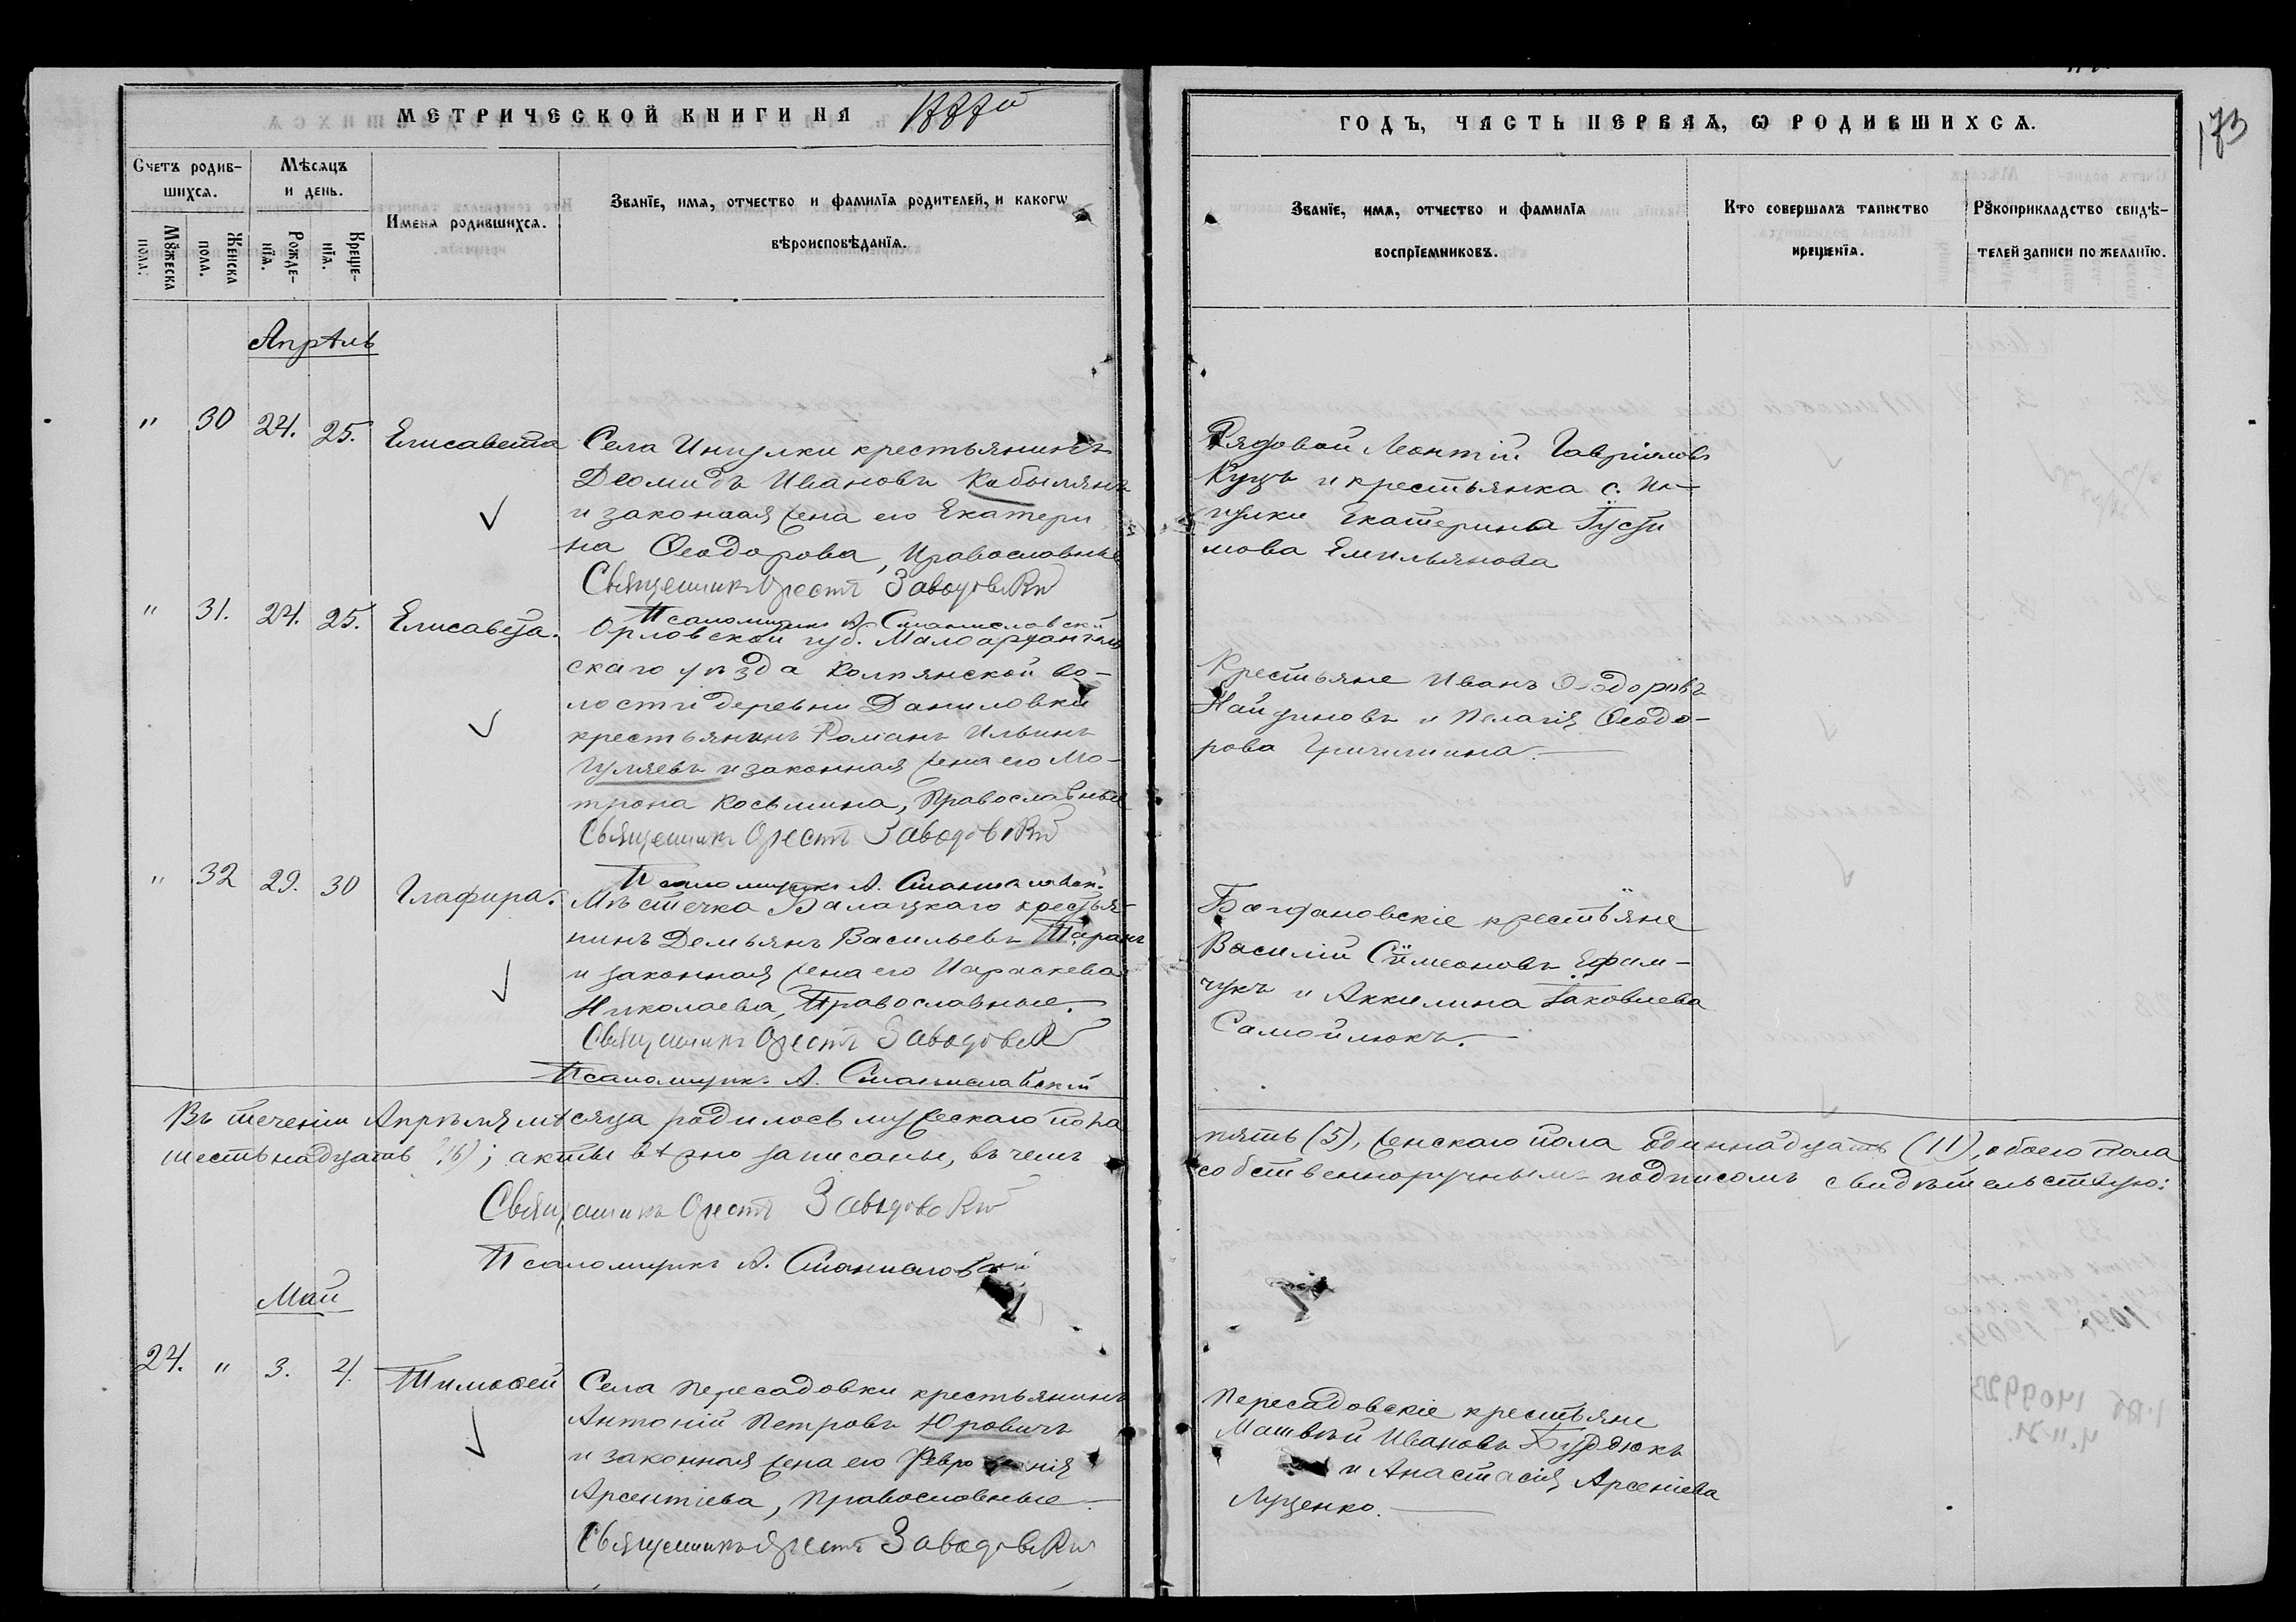 МЕТРИЧЕСКОЙ КНИГИ НА 1888й
ГОДЪ, ЧАСТЬ ПЕРВАЯ, Ѡ РОДИВШИХСѦ.
173
Счетъ родив-
шихсѧ.
Мѣсяцъ
и день.
Мꙋжеска
пола.
Женска
пола.
Рожде-
нїѧ.
Креще-
нїѧ.
Имена родившихсѧ.
Званїе, имѧ, отчество и фамилїѧ родителей, и какогѡ
вѣроисповѣданїѧ.
Званїе, имѧ, отчество и фамилїѧ
воспрїемниковъ.
Кто совершалъ таинство
крещенїѧ.
Рꙋкоприкладство свидѣ-
телей записи по желанїю.
Апрѣль
" 30 24. 25. Елисавета
Села Ингулки крестьянинъ
Деомидъ Ивановъ Кобылянъ
и законная жена его Екатери
на Ѳеодорова, Православные
Священникъ Орестъ Заводовскій
Псаломщикъ А. Станиславскій
Рядовой Леонтій Гавріиловъ
Куцъ и крестьянка с. Ин-
гулки Екатерина Густи
мова Емильянова
" 31. 24. 25. Елисавета.
Орловской губ. Малоархангель
скаго уѣзда Колпянской во-
лости деревни Даниловки
крестьянинъ Романъ Ильинъ
Гуляевъ и законная жена его Мо-
трона Косьмина, Православные
Священникъ Орестъ Заводовскій
Псаломщикъ А. Станиславскій
Крестьяне Иванъ Ѳеодоровъ
Найденовъ и Пелагія Ѳеодо-
рова
" 32 29. 30 Глафира.
Мѣстечка Балацкаго крестья-
нинъ Демьянъ Васильевъ Таранъ
и законная жена его Параскева
Николаева, Православные.
Священникъ Орестъ Заводовскій
Псаломщикъ А. Станиславскій
Богдановскіе крестьяне
Василій Сѵмеоновъ Ефим-
чукъ и Аккилина Іаковлева
Самойлюкъ.
Въ теченіи Апрѣля мѣсяца родилось мужескаго пола
пять (5), женскаго пола Одиннадцать (11), обоего пола
шестьнадцать (16); акты вѣрно записаны, въ чемъ
собственноручнымъ подписомъ свидѣтельствую:
Священникъ Орестъ Заводовскій
Псаломщикъ А. Станиславскій
Май
24. " 3. 4. Тимоѳей
Села Пересадовки крестьянинъ
Антоній Петровъ Юровичъ
и законная жена его Февронія
Арсентіева, Православные
Священникъ Орестъ Заводовскій
Пересадовскіе крестьяне
Матвѣй Ивановъ Бурдюкъ
и Анастасія Арсеніева
Луценко.